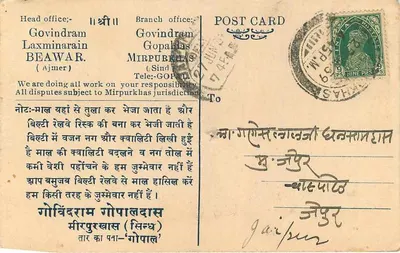 Head office:-
॥श्री॥
Branch office:-
Govindram
Laxminarain
BEAWAR.
(Ajmer)
Govindram
Gopaldas
MIRPURKHAS
(Sind
Tele:-GOP
We are doing all work on your responsi
All disputes subject to Mirpurkhas jurisdiction
नोट:-माल यहां से तुला कर भेजा जाता है और
बिल्टी रेलवे रिस्क की बना कर भेजी जाती है
बिल्टी में वजन नग और क्वालिटी लिखी हुई
है माल की क्वालिटी बदलने व नग तोल में
कमी वेशी पहोंचने के हम जुम्मेवार नहीं हैं
आप बमुजब बिल्टी रेलवे से माल हासिल करें
हम किसी तरह के जुम्मेवार नहीं हैं।
गोबिंदराम गोपालदास
मीरपुरखास (सिन्ध)
तार का पता-'गोपाल'
POST CARD
To
जैपुर
जैपुर
Jaipur